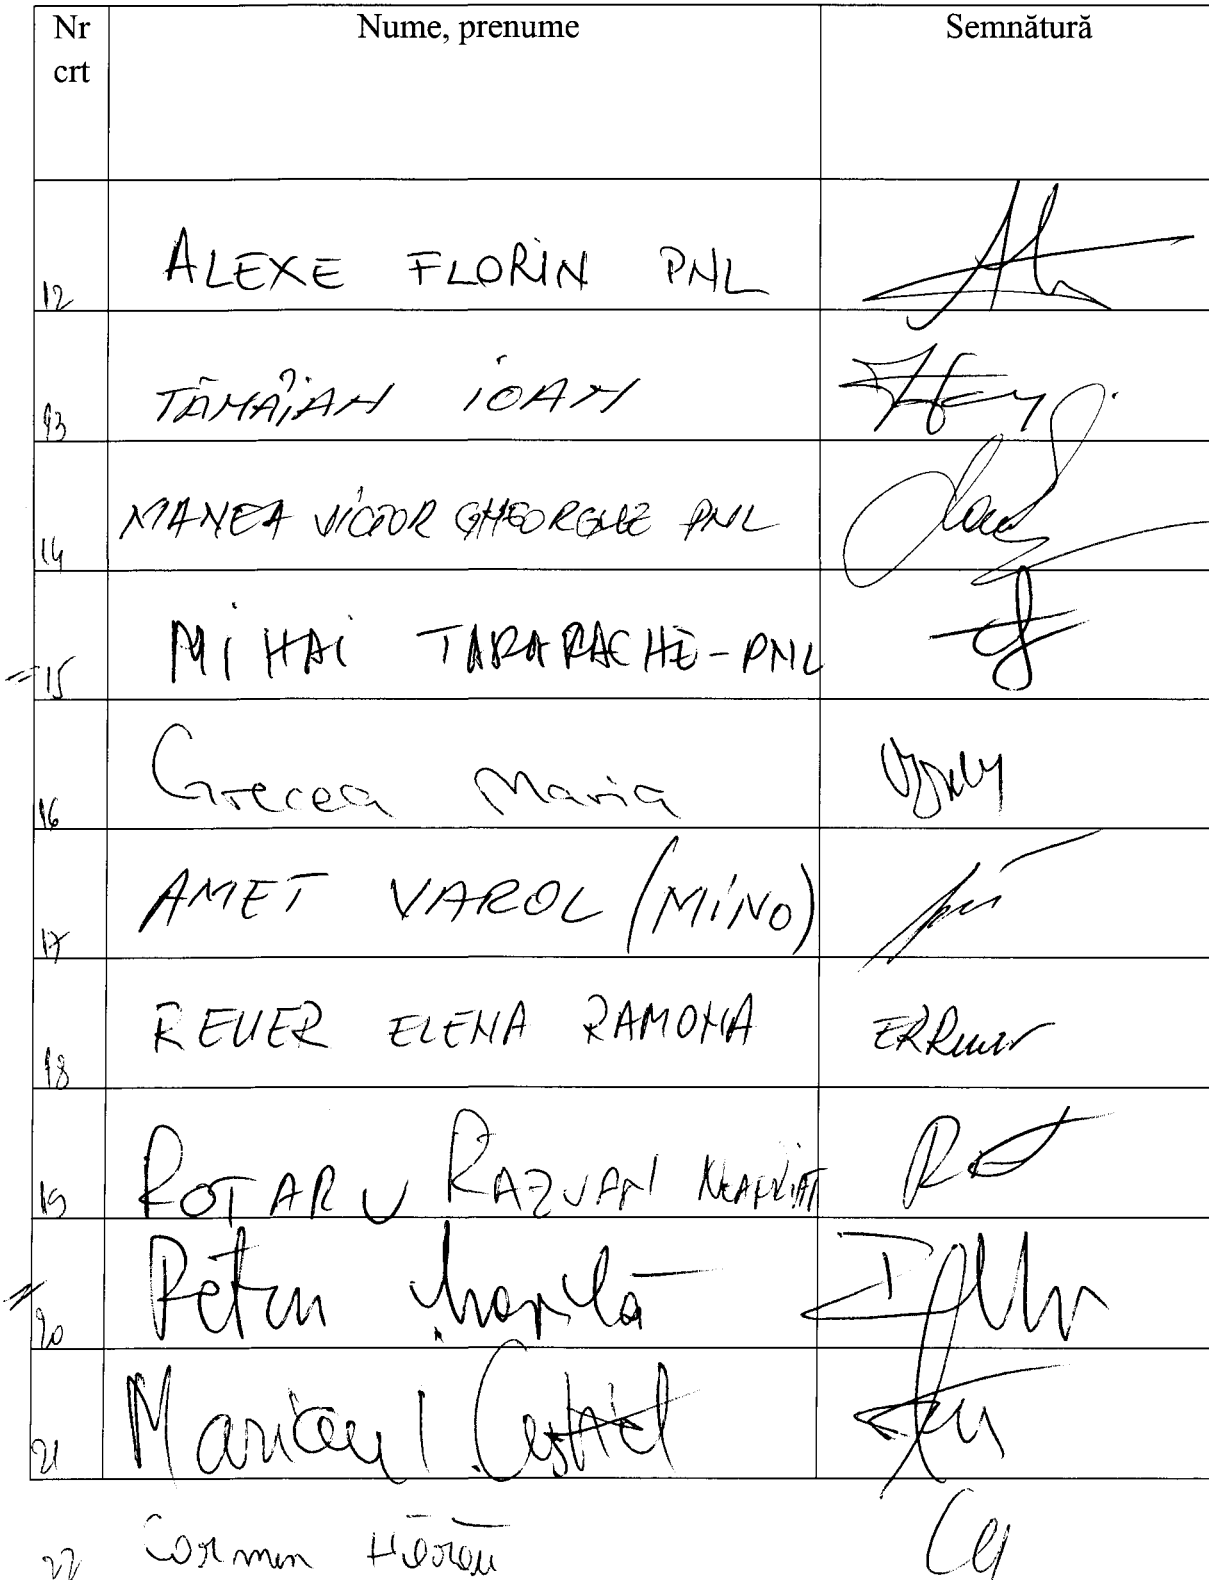 Nr crt Nume, prenume Semnătură
12 ALEXE FLORIN PNL
13 TĂMÂIAN IOAN
14 MANEA VICTOR GHEORGHE PNL
15 MIHAI TARARACHE-PNL
16 Grecea Maria
17 AMET VAROL (MINO)
18 REUER ELENA RAMONA ERReuer
19 ROTARU RAZVAN NEAFILIAT
20 Petru Movilă
21 Maricel
22 Carmen Hărău